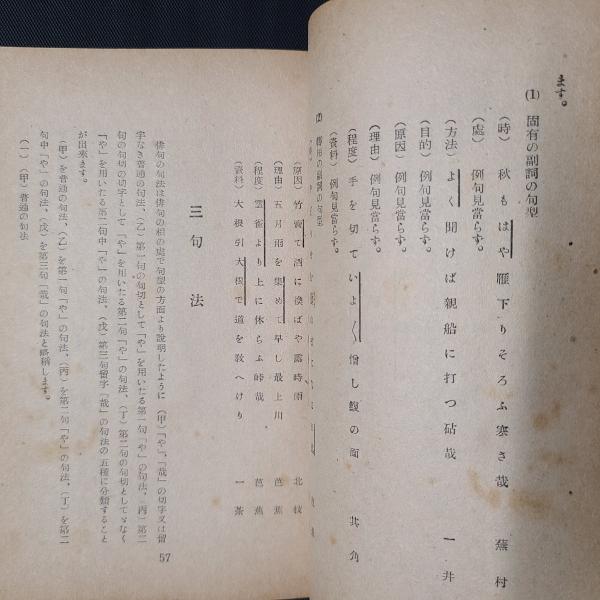 ます。
(1) 固有の副詞の句型
(時) 秋もはや雁下りそろふ寒さ哉 蕪村
(處) 例句見當らず。
(方法) よく聞けば親船に打つ砧哉 一井
(目的) 例句見當らず。
(原因) 例句見當らず。
(理由) 例句見當らず。
(程度) 手を切ていよ〱憎し鰒の面 其角
(資料) 例句見當らず。
(2) 轉用の副詞の句型
(原因) 竹賣て酒に渙ばや露時雨 北枝
(理由) 五月雨を集めて早し最上川 芭蕉
(程度) 雲雀より上に休らふ峠哉 芭蕉
(資料) 大根引大根で道を敎へけり 一茶
三 句法
俳句の句法は俳句の相の處で句型の方面より說明したように(甲)「や」、「哉」の切字又は留
字なき普通の句法、(乙)第一句の句切として「や」を用いたる第一句「や」の句法、(丙)第二
句の句切の切字として「や」を用いたる第二句「や」の句法、(丁)第二句の句切としてゞなく
「や」を用いたる第二句中「や」の句法、(戊)第三句留字「哉」の句法の五種に分類すること
が出來ます。
(甲)を普通の句法、(乙)を第一句「や」の句法、(丙)を第二句「や」の句法、(丁)を第二
句中「や」の句法、(戊)を第三句「哉」の句法と略稱します。
(一) (甲)普通の句法
57